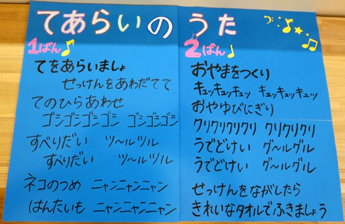 てあらいのうた
1ばん
てをあらいましょ
せっけんをあわだてて
てのひらあわせ
ゴシゴシゴシゴシ ゴシゴシゴシ
すべりだい ツ〜ルツル
すべりだい ツ〜ルツル
ネコのつめ ニャンニャンニャン
はんたいも ニャンニャンニャン
2ばん
おやまをつくり
キュッキュッキュッ キュッキュッキュッ
おやゆびにぎり
クリクリクリクリ クリクリクリ
うでどけい グ〜ルグル
うでどけい グ〜ルグル
せっけんをながしたら
きれいなタオルでふきましょう